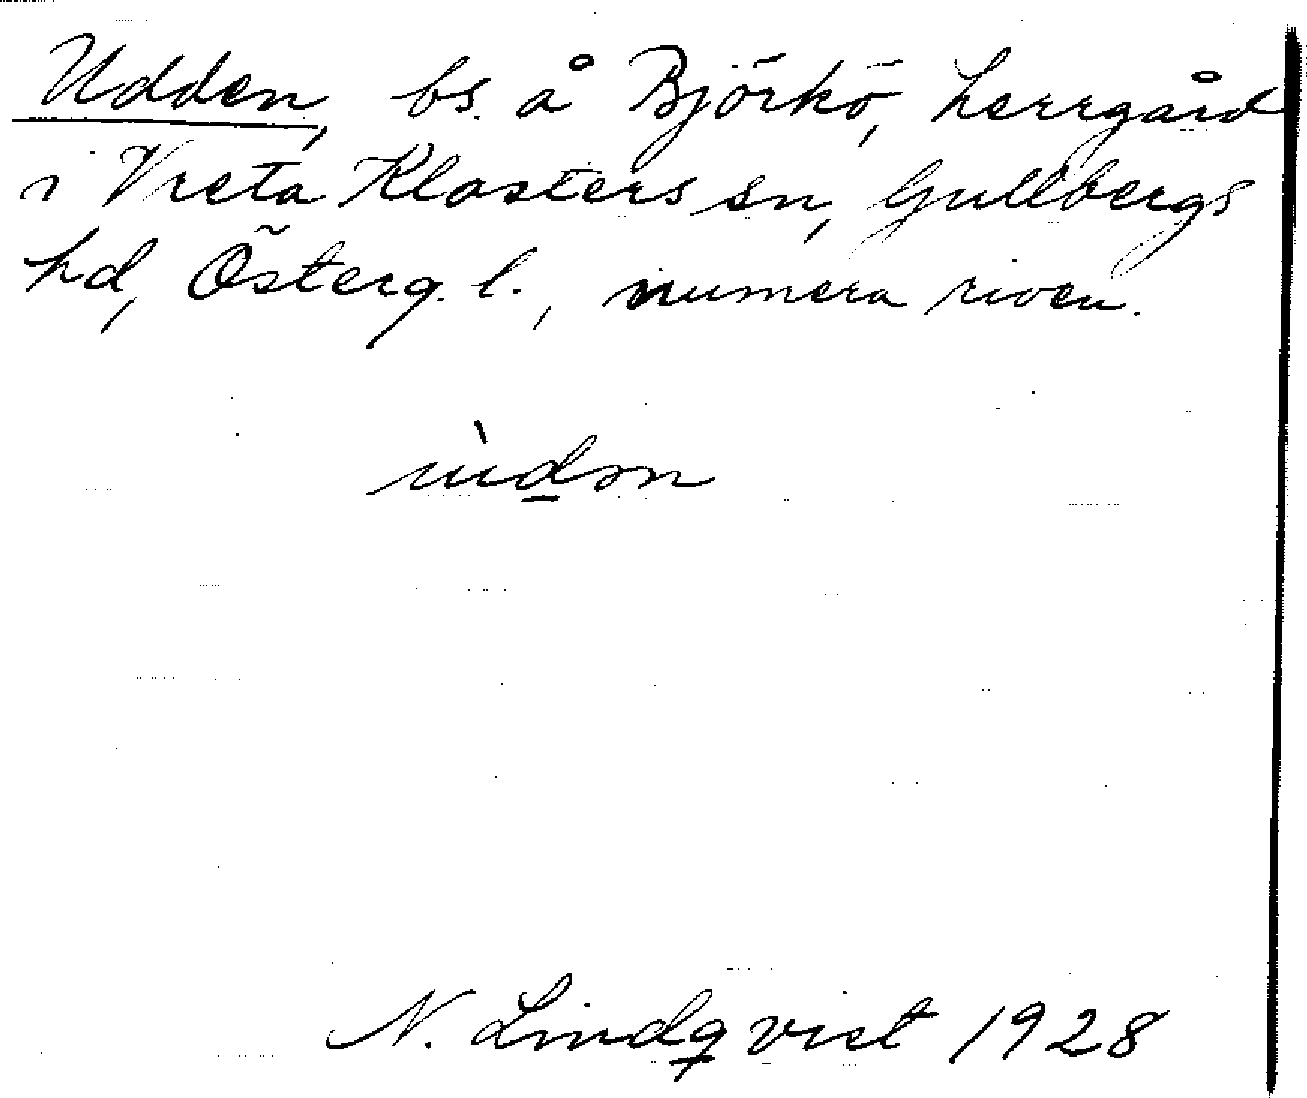 Udden, bs. å Björkö, herrgård
i Vreta Klosters sn, Gullbergs
hd, Österg. l., numera riven.
N. Lindqvist 1928